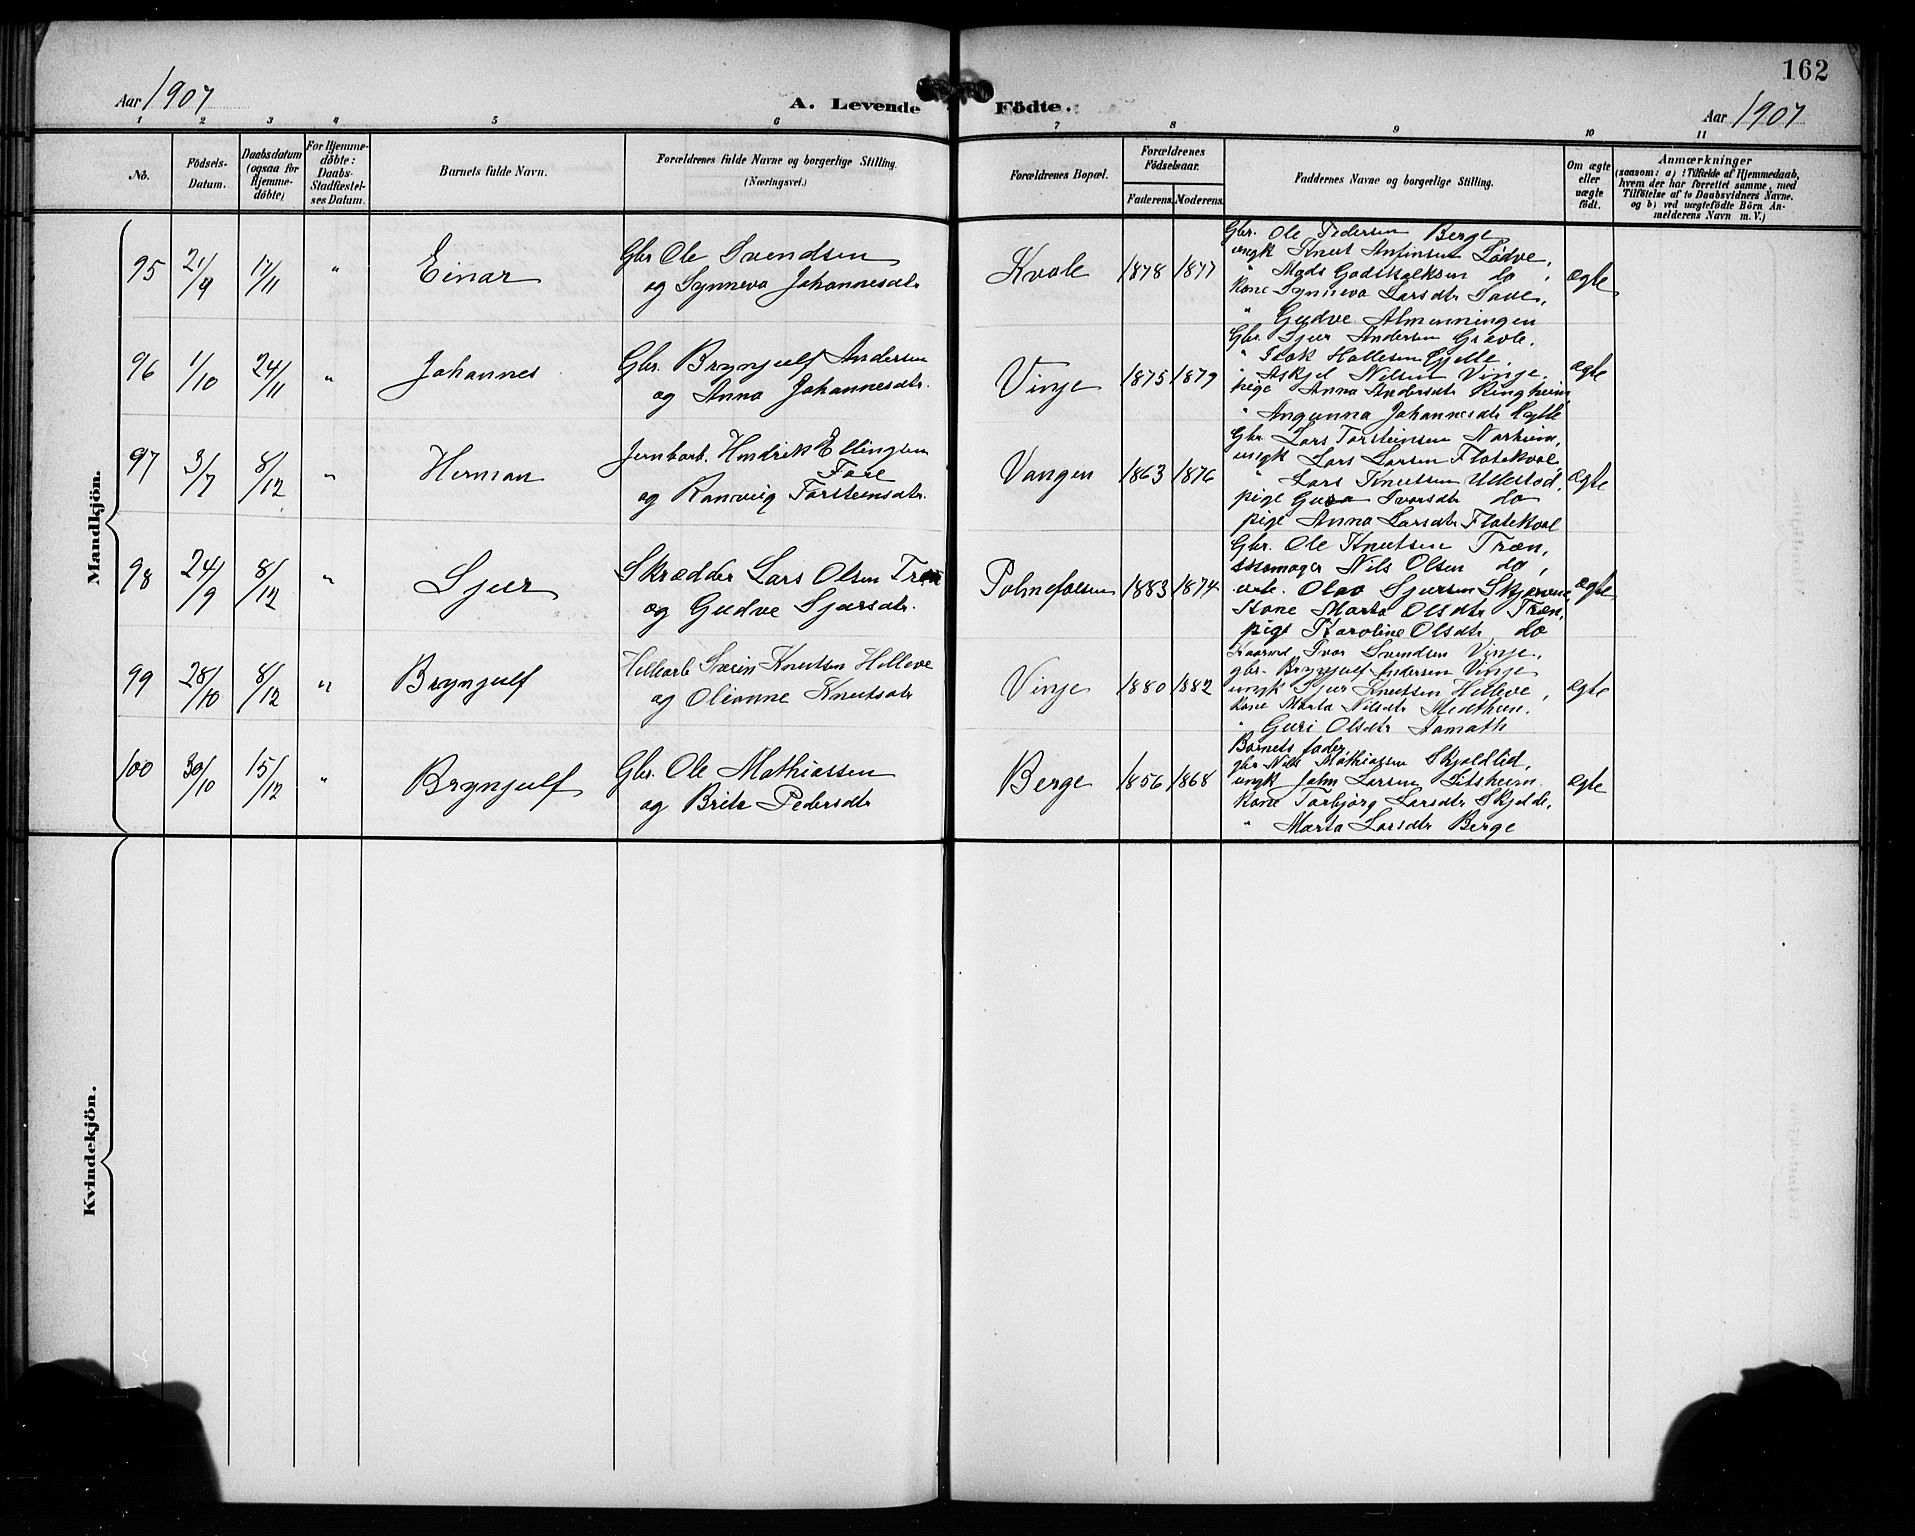 162
Aar 1907
A. Levende Födte.
Aar 1907
1 2 3 4 5 6 7 8 9 10 11
No.
Födsels-Datum.
Daabsdatum (ogsaa for Hjemme-döbte)
For Hjemme-döbte: Daabs-Stadfæstel-ses Datum.
Barnets fulde Navn.
Forældrenes fulde Navne og borgerlige Stilling.
(Næringsvei.)
Forældrenes Bopæl.
Forældrenes Födselsaar.
Faderens. Moderens.
Faddernes Navne og borgerlige Stilling.
Om ægte eller uægte födt.
Anmærkninger
(saasom: a) i Tilfælde af Hjemmedaab,
hvem der har forrettet samme, med
Tilföielse af to Daabsvidners Navne.
og b) ved uægtefödte Börn An-
melderens Navn m. V.)
Mandkjön.
95 21/9 17/11 " Einar
Gbr. Ole Svendsen
og Synneva Johannesdtr
Kvale 1878 1877
Gbr. Ole Pedersen Berge
ungk Knut Anfinsen Lødve,
" Mads Godskalksen do,
Kone Synneva Larsdtr Save,
" Gudve Almenningen
ægte
96 1/10 24/11 " Johannes
Gbr. Brynjulf Andersen
og Anna Johannesdtr.
Vinje 1875 1879
Gbr. Sjur Andersen Grevle,
" Isak Hallesen Gjelle,
" Askjel Nilsen Vinje.
pige Anna Andersdtr Ringheim,
" Angunna Johannesdtr
ægte
97 3/7 8/12 " Herman
Jernbarb. Hendrik Ellingsen
Fare
og Ranveig Torsteinsdtr.
Vangen 1863 1876
Gbr. Lars Torsteinsen Norheim,
ungk Lars Larsen Flatekval
" Lars Knutsen Ullestad,
pige Guro Ivarsdtr do
pige Anna Larsdtr Flatekval
ægte
98 24/9 8/12 " Sjur
Skrædder Lars Olsen Træn
og Gudve Sjursdtr.
Palmefossen 1883 1874
Gbr. Ole Knutsen Træn,
Skomager Nils Olsen do,
arb. Olav Sjursen Skjerven,
Kone Marta Olsdtr Træn,
pige Karoline Olsdtr, do
ægte
99 28/10 8/12 " Brynjulf
Svein Knutsen Helleve
og Olianne Knutsdtr
Vinje 1880 1882
Ivar Svendsen Vinje,
gbr. Brynjulf Andersen Vinje
ungk Sjur Knutsen Helleve,
Kone Marta Nilsdtr Medhun.
" Guri Olsdtr
ægte
100 30/10 15/12 " Brynjulf
Gbr. Ole Mathiassen
og Brita Pedersdtr
Berge 1856 1868
Barnets fader,
gbr Nils Mathiassen Skjeldlid,
ungk John Larsen Litsheim
Kone Torbjørg Larsdtr Skjelde,
" Marta Larsdtr Berge
ægte
Kvindekjön.